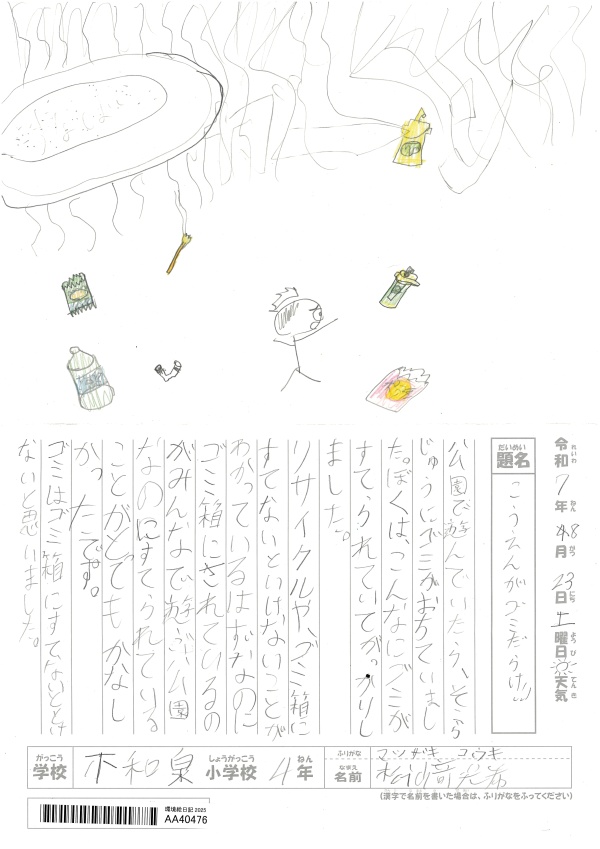 令和7年8月23日土曜日 天気
れいわ ねん がつ にち ようび てんき
だいめい
題名
こうえんがゴミだらけ!!
公園で遊んでいたら、そこら
じゅうにゴミがおちていまし
た。ぼくは、こんなにゴミが
すてられていてがっかりし
ました。
リサイクルや、ゴミ箱に
すてないといけないことが
わかっているはずなのに
ゴミ箱にされているの
がみんなで遊ぶ公園
なのにすてられている
ことがとてもかなし
かったです。
ゴミはゴミ箱にすてないといけ
ないと思いました。
がっこう
学校
木和泉
しょうがっこう
小学校
4年
ねん
ふりがな
マツザキ コウキ
なまえ
名前
松﨑
(漢字で名前を書いた場合は、ふりがなをふってください)
環境絵日記2025
AA40476